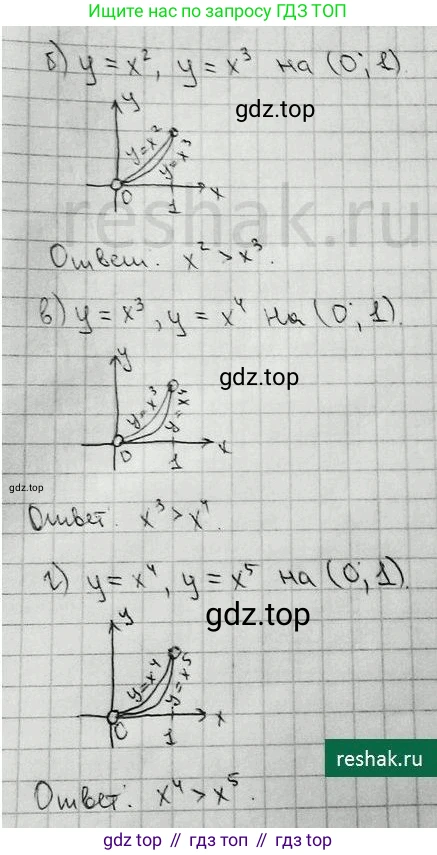 Ищите нас по запросу ГДЗ ТОП
б) y = x², y = x³ на (0; 1).
gdz.top
y
y=x²
y=x³
0
1
x
reshak.ru
Ответ: x² > x³.
в) y = x³, y = x⁴ на (0; 1).
y
gdz.top
y=x³
y=x⁴
0
1
x
gdz.top
Ответ: x³ > x⁴.
г) y = x⁴, y = x⁵ на (0; 1).
gdz.top
y
y=x⁴
y=x⁵
0
1
x
reshak.ru
Ответ: x⁴ > x⁵.
gdz.top // гдз.top // гдз.топ